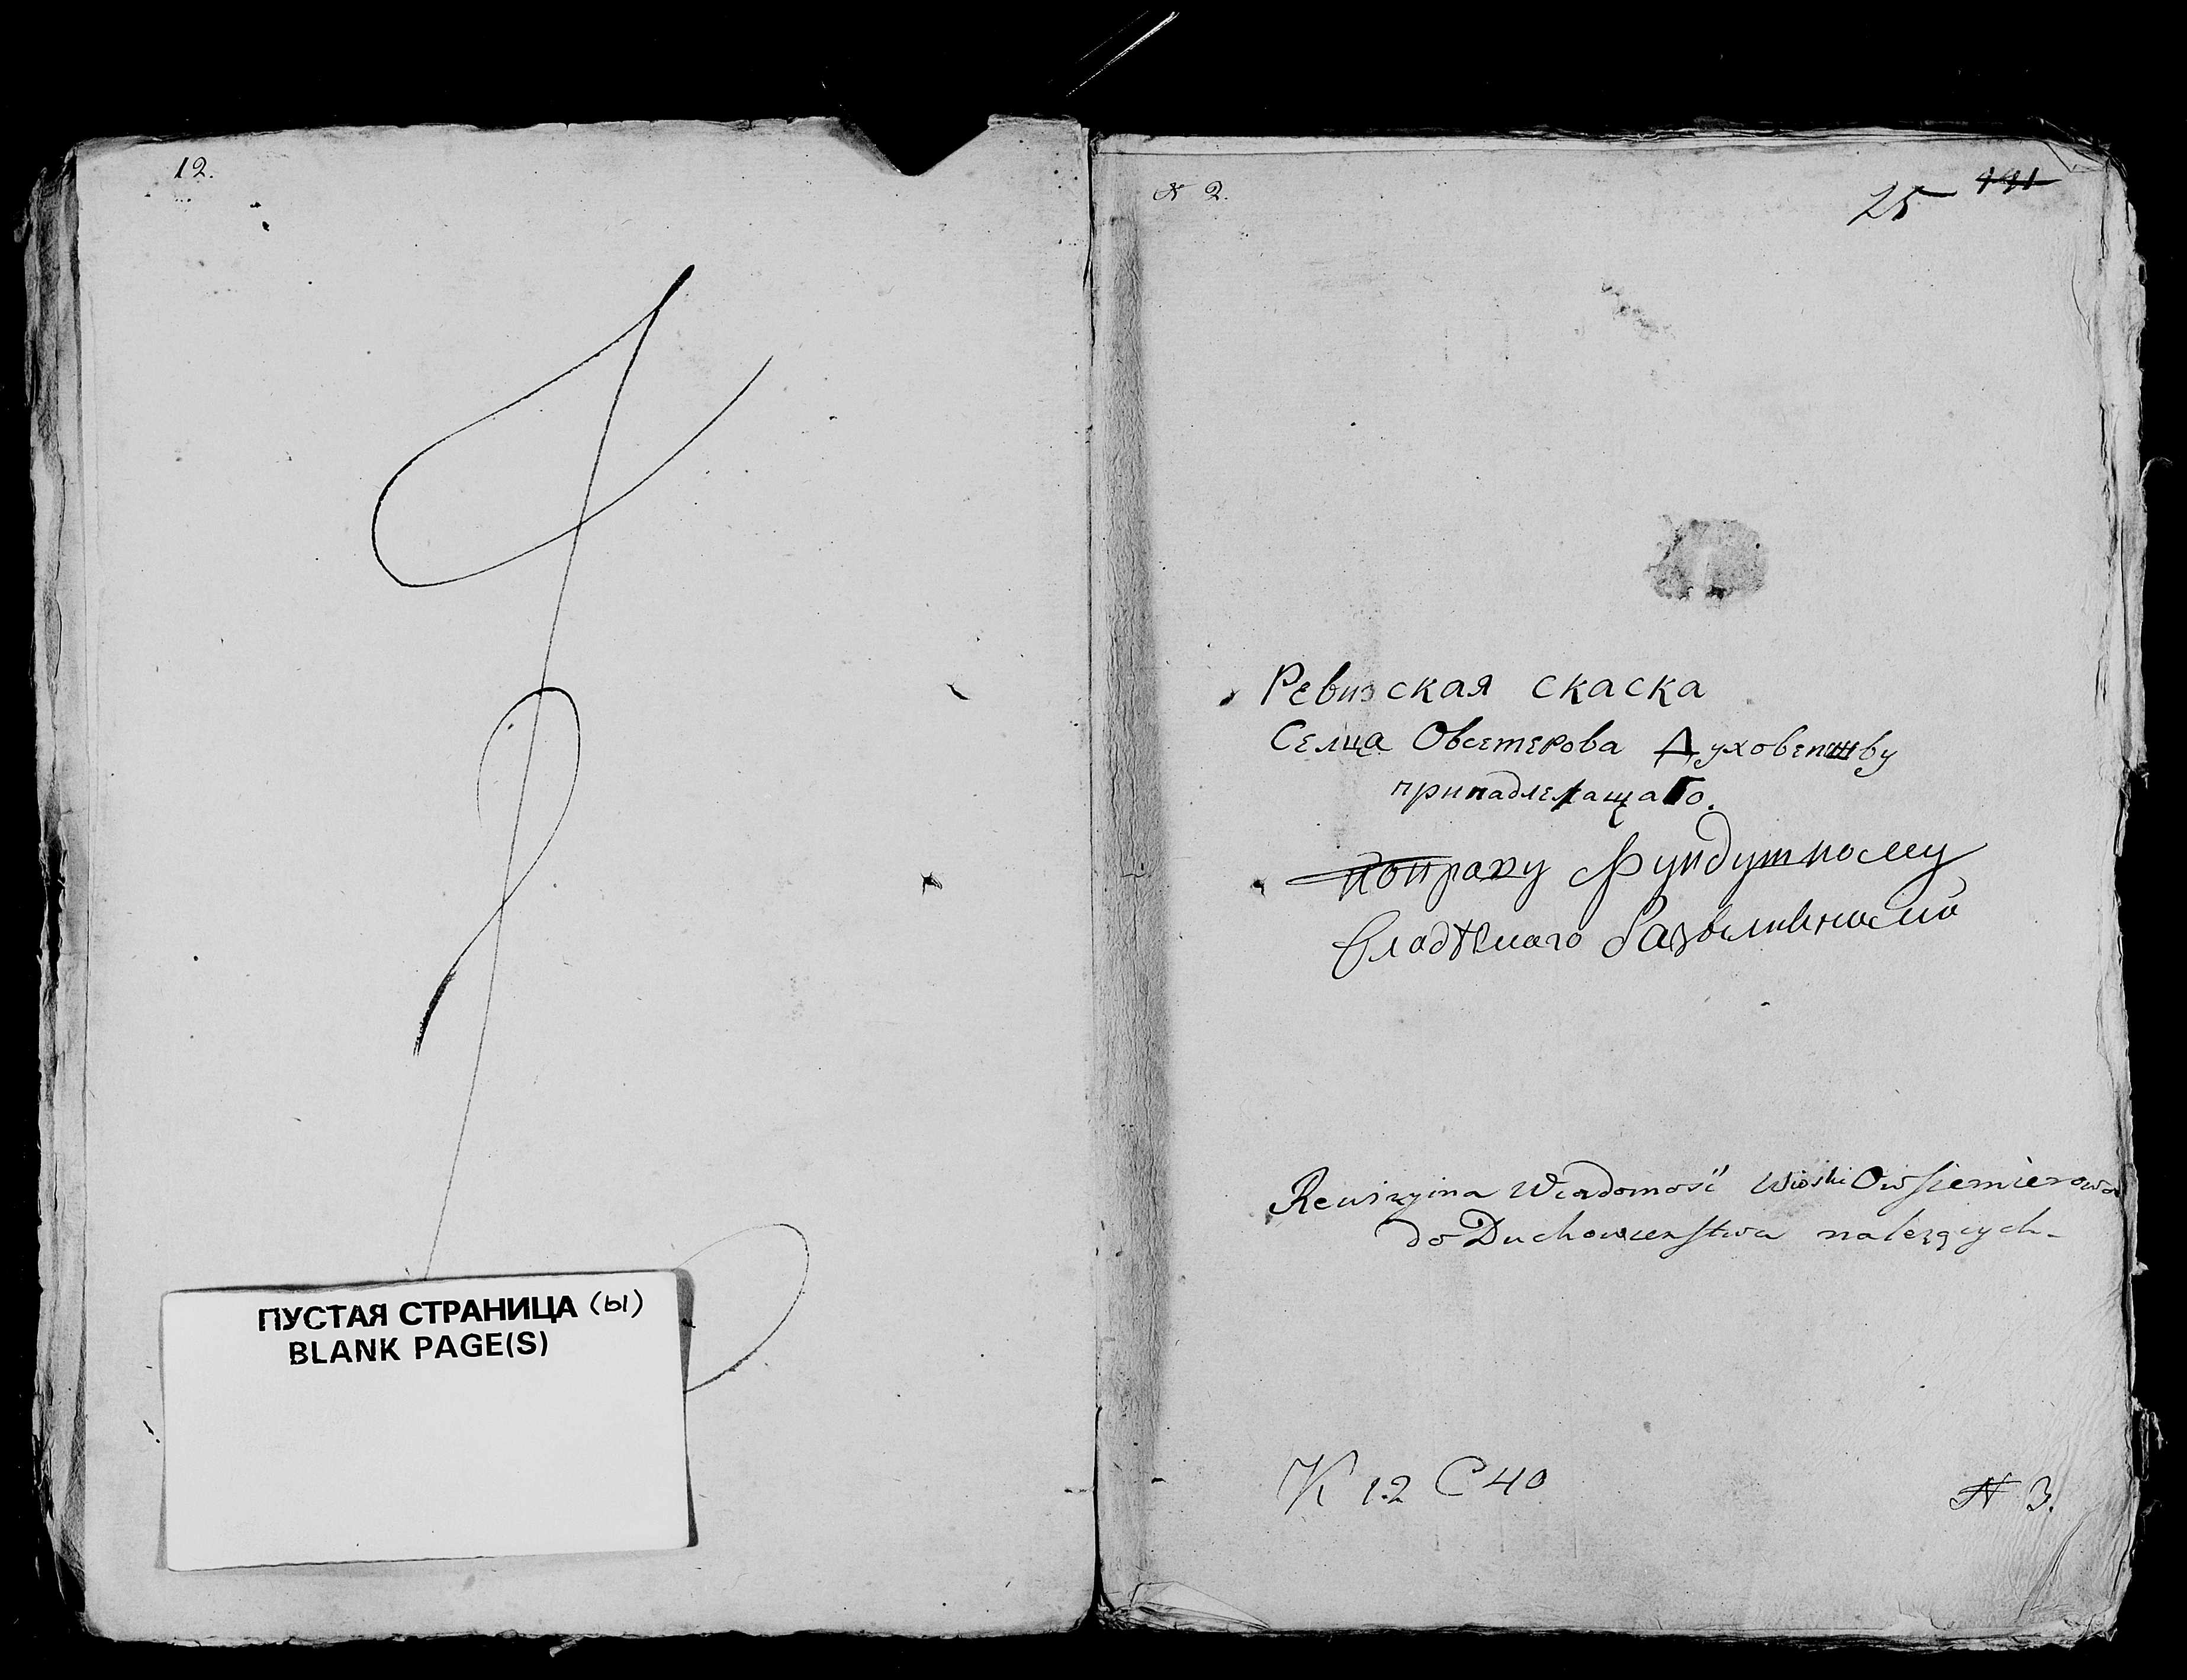 12.
ПУСТАЯ СТРАНИЦА (ы)
BLANK PAGE(S)
N 2.
25 191
Ревизская скаска
Селца Овсемерова Духовенству
принадлежащаго.
поправу Фундушному
Владѣемаго
Rewizyina Wiadomość Wioski Owsiemierowa
do Duchowienstwa należących-
K 12 C 40
N 3.